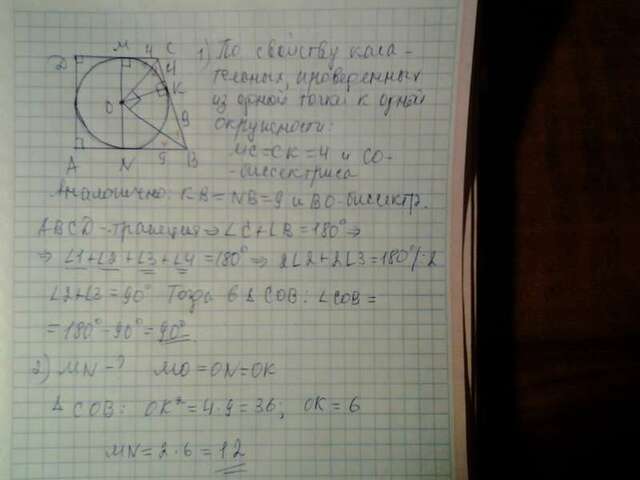 M 4 C
D 4
K
O 9
A N 9 B
1) По свойству каса-
тельных, проведенных
из одной точки к одной
окружности:
MC=CK=4 и CO-
-биссектриса
Аналогично: KB=NB=9 и BO-биссектр.
ABCD-трапеция ⇒ ∠C+∠B=180° ⇒
⇒ ∠1+∠2+∠3+∠4=180° ⇒ 2∠2+2∠3=180°/:2
∠2+∠3=90° Тогда в ΔCOB: ∠COB=
=180°-90°=90°.
2) MN-? MO=ON=OK
ΔCOB: OK²=4·9=36; OK=6
MN=2·6=12